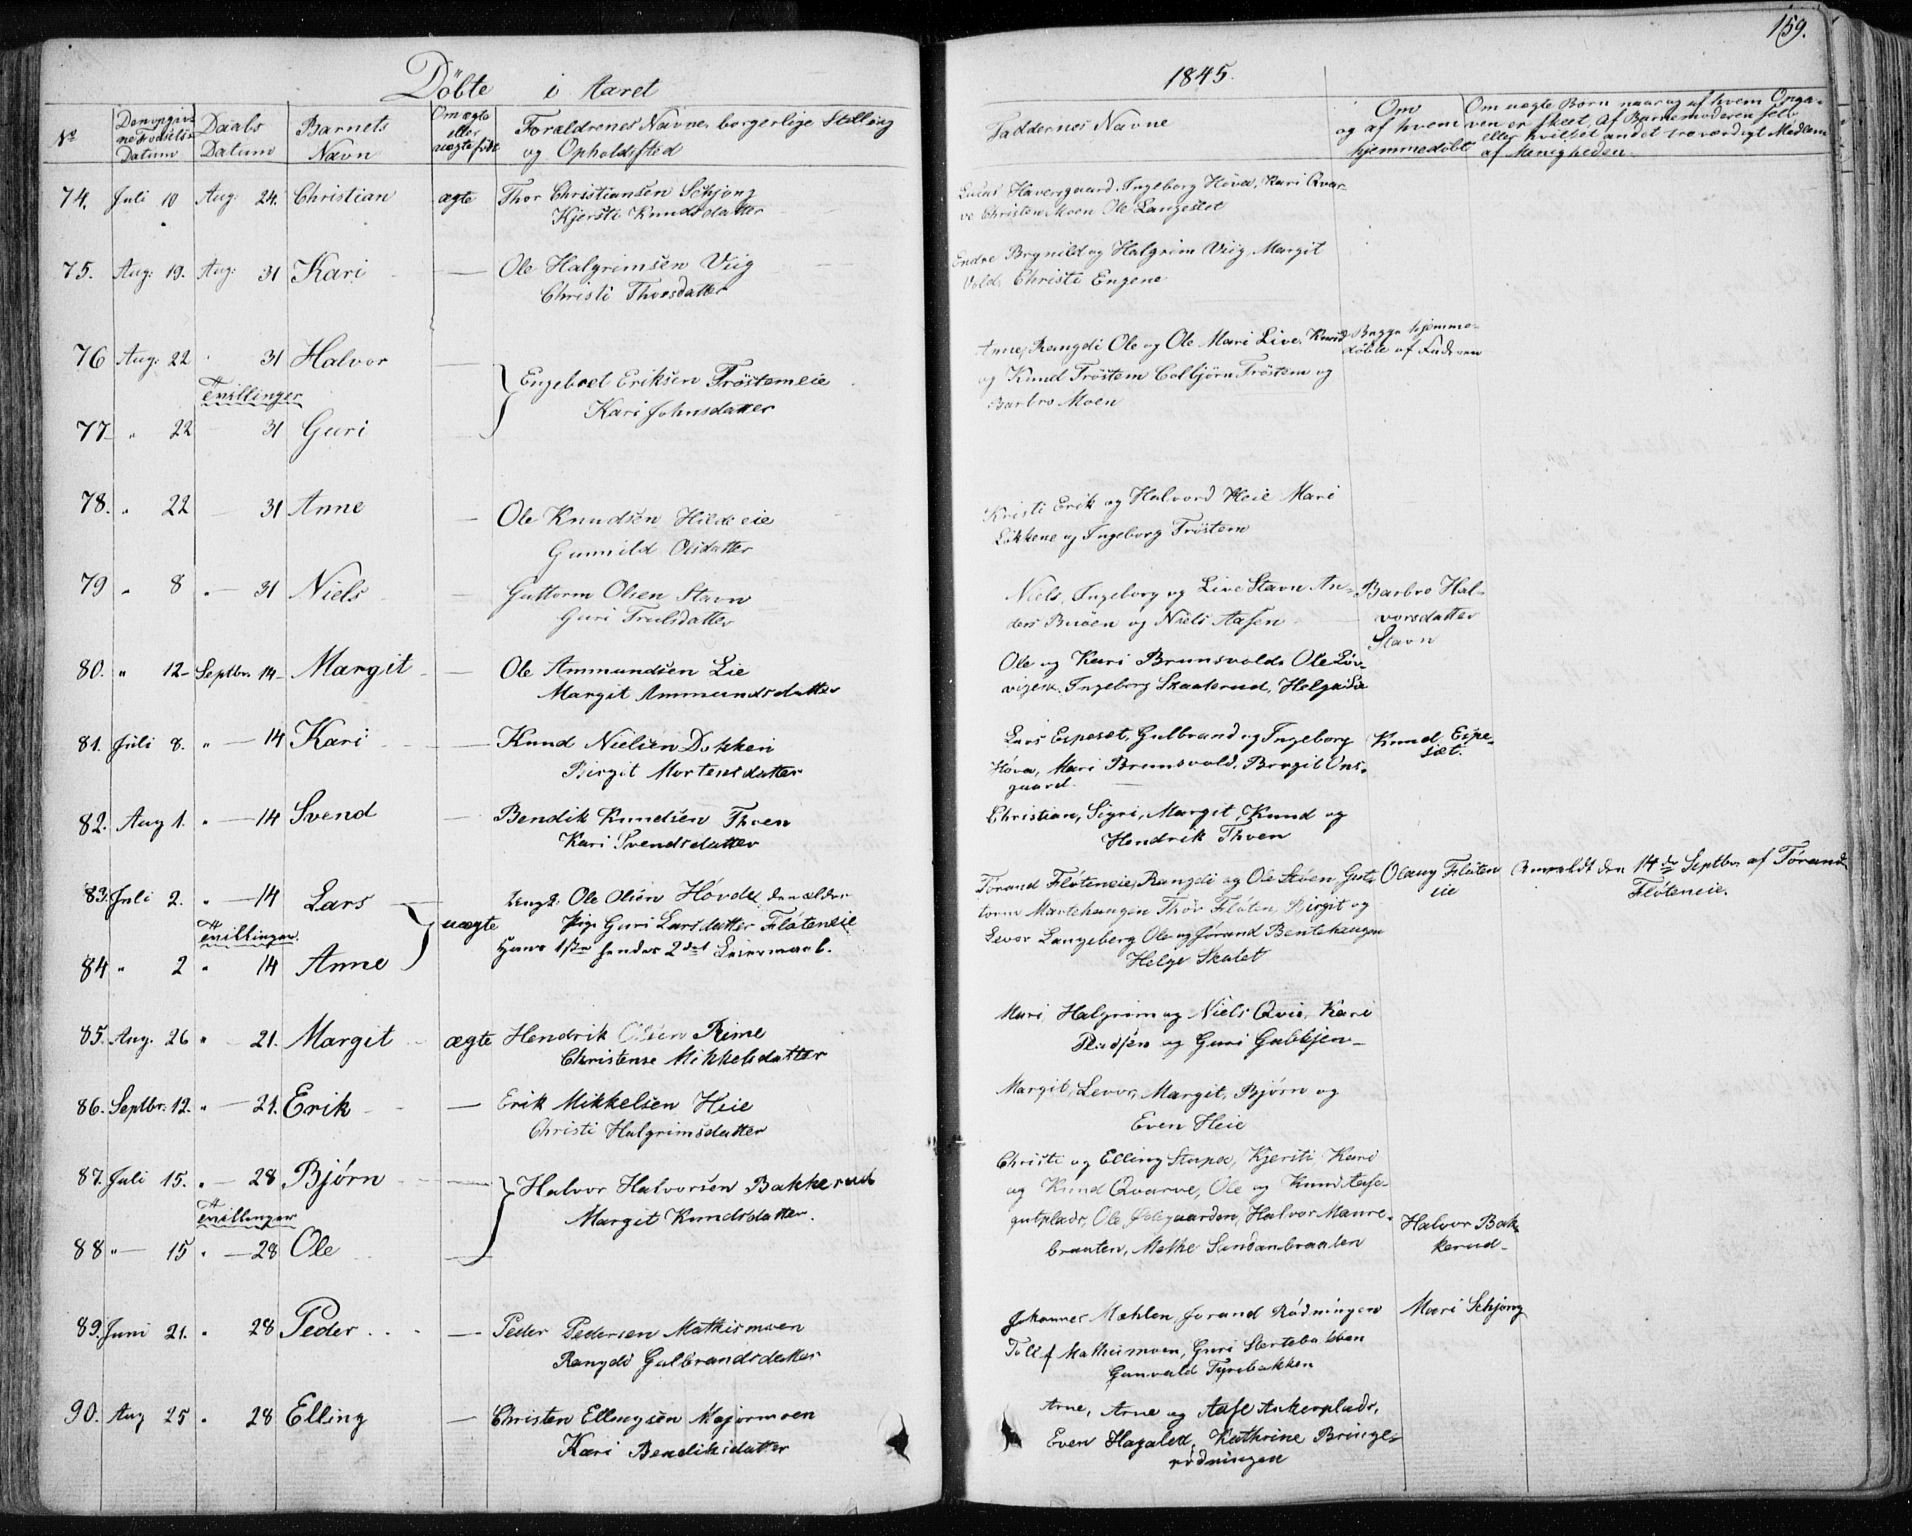 159.
Döbte i Aaret 1845.
No
Den opgiv-
ne Fødsels-
Datum
Daabs
Datum
Barnets
Navn
Om ægte
eller
uægte født
Forældrenes Navne, borgerlige Stilling
og Opholdsted
Faddernes Navne
Om
og af hvem
hjemmedöbt
Om uægte Børn naar og af hvem Opga-
ven er skeet. Af Barnemoderen selv
eller hvilket andet troværdigt Medlem
af Menigheden.
74. Juli 10 Aug: 24. Christian ægte Thor Christiansen Schjong
Kjersti Knudsdatter
Haversgaard, Ingeborg Hóva, Kari Qvar-
ve Christen Moen Ole Langeslet
75. Aug: 19. Aug: 31 Kari — Ole Halgrimsen Viig
Christi Thorsdatter
Endre Brynild og Halgrim Viig Margit
Vold, Christi Engene
76 Aug: 22 31 Halvor
Tvillinger
77 " 22 31 Guri
Engebret Eriksen Tröstemeie
Kari Johnsdatter
Anne, Rangdi Ole og Ole Mari Live, Knud
og Knud Tröstem Colbjörn Tröstem og
Barbro Moen
Begge hjemme-
döbte af Faderen
78. " 22 31 Anne — Ole Knudsen Hildeeie
Gunnild Olsdatter
Kristi Erik og Halvord Heie Mari
Lökkene og Ingeborg Tröstem
79 " 8 " — 31 Niels — Guttorm Olsen Stavn
Guri Trulsdatter
Niels, Ingeborg og Live Stavn An-
ders Buöen og Niels Aasen
Barbro Hal-
vorsdatter
Stavn
80. " 12 Septbr. 14 Margit — Ole Ammundsen Lie
Margit Ammundsdatter
Ole og Kari Brunsvold, Ole Löv-
vigen, Ingeborg Skaalerud, Helga Lie
81. Juli 8. " — 14 Kari — Knud Nielsen Dokken
Birgit Mortensdatter
Lars Espeset, Gulbrand og Ingeborg
Hóva, Mari Brunsvold, Birgit Ons-
gaard.
Knud Espe-
set.
82. Aug 1. " — 14 Svend — Bendik Knudsen Thoen
Kari Svendsdatter
Christian, Sigri, Margit, Knud og
Hendrik Thoen
83. Juli 2. " — 14 Lars
Tvillinger.
84 " 2 " 14 Anne
uægte
Ungk. Ole Olsen Hovde, den ældre
Pige Guri Larsdatter Fløteneie
Hans 1ste hendes 2det Leiermaal.
Torand Fløteneie, Rangdi og Ole Støen Gut-
torm Mortehaugen Thor Fløten, Birgit og
Levor Langeberg Ole og Jørand Bentehaugen
Helge Skalet
Olaug Fløten
eie
Anmeldt den 14de Septbr. af Tørand
Fløteneie.
85. Aug. 26 " — 21. Margit ægte Hendrik Olsen Rime
Christense Mikkelsdatter
Mari, Halgrim og Niels Qvie, Kari
og Guri Gubhjem
86. Septbr. 12. " — 21. Erik — Erik Mikkelsen Heie
Christi Halgrimsdatter
Margit, Levor, Margit, Bjørn og
Even Heie
87. Juli 15. " — 28 Bjørn
Tvillinger
88 " — 15 " — 28 Ole
Halvor Halvorsen Bakkerud
Margit Knudsdatter.
Christi og Elling Stapa, Kjersti Kari
og Knud Qvarve, Ole og Knud Aase-
gutplads, Ole Ødegaarden, Halvor Maure-
braaten, Methe Sundanbraaten
Halvor Bak-
kerud.
89. Juni 21. " 28 Peder — Peder Pedersen Mathismoen
Rangdi Gulbrandsdatter
Johannes Mæhlen, Jorand Rödningen
Tollef Mathismoen, Guri Stertebakken
Gunvald Tyrebakken
Mari Schjong
90. Aug 25 " 28 Elling — Christen Ellingsen Majormoen
Kari Bendiksdatter
Arne, Arne og Aase Ankerplads,
Even Hagaled, Kathrine Bringe-
rödningen